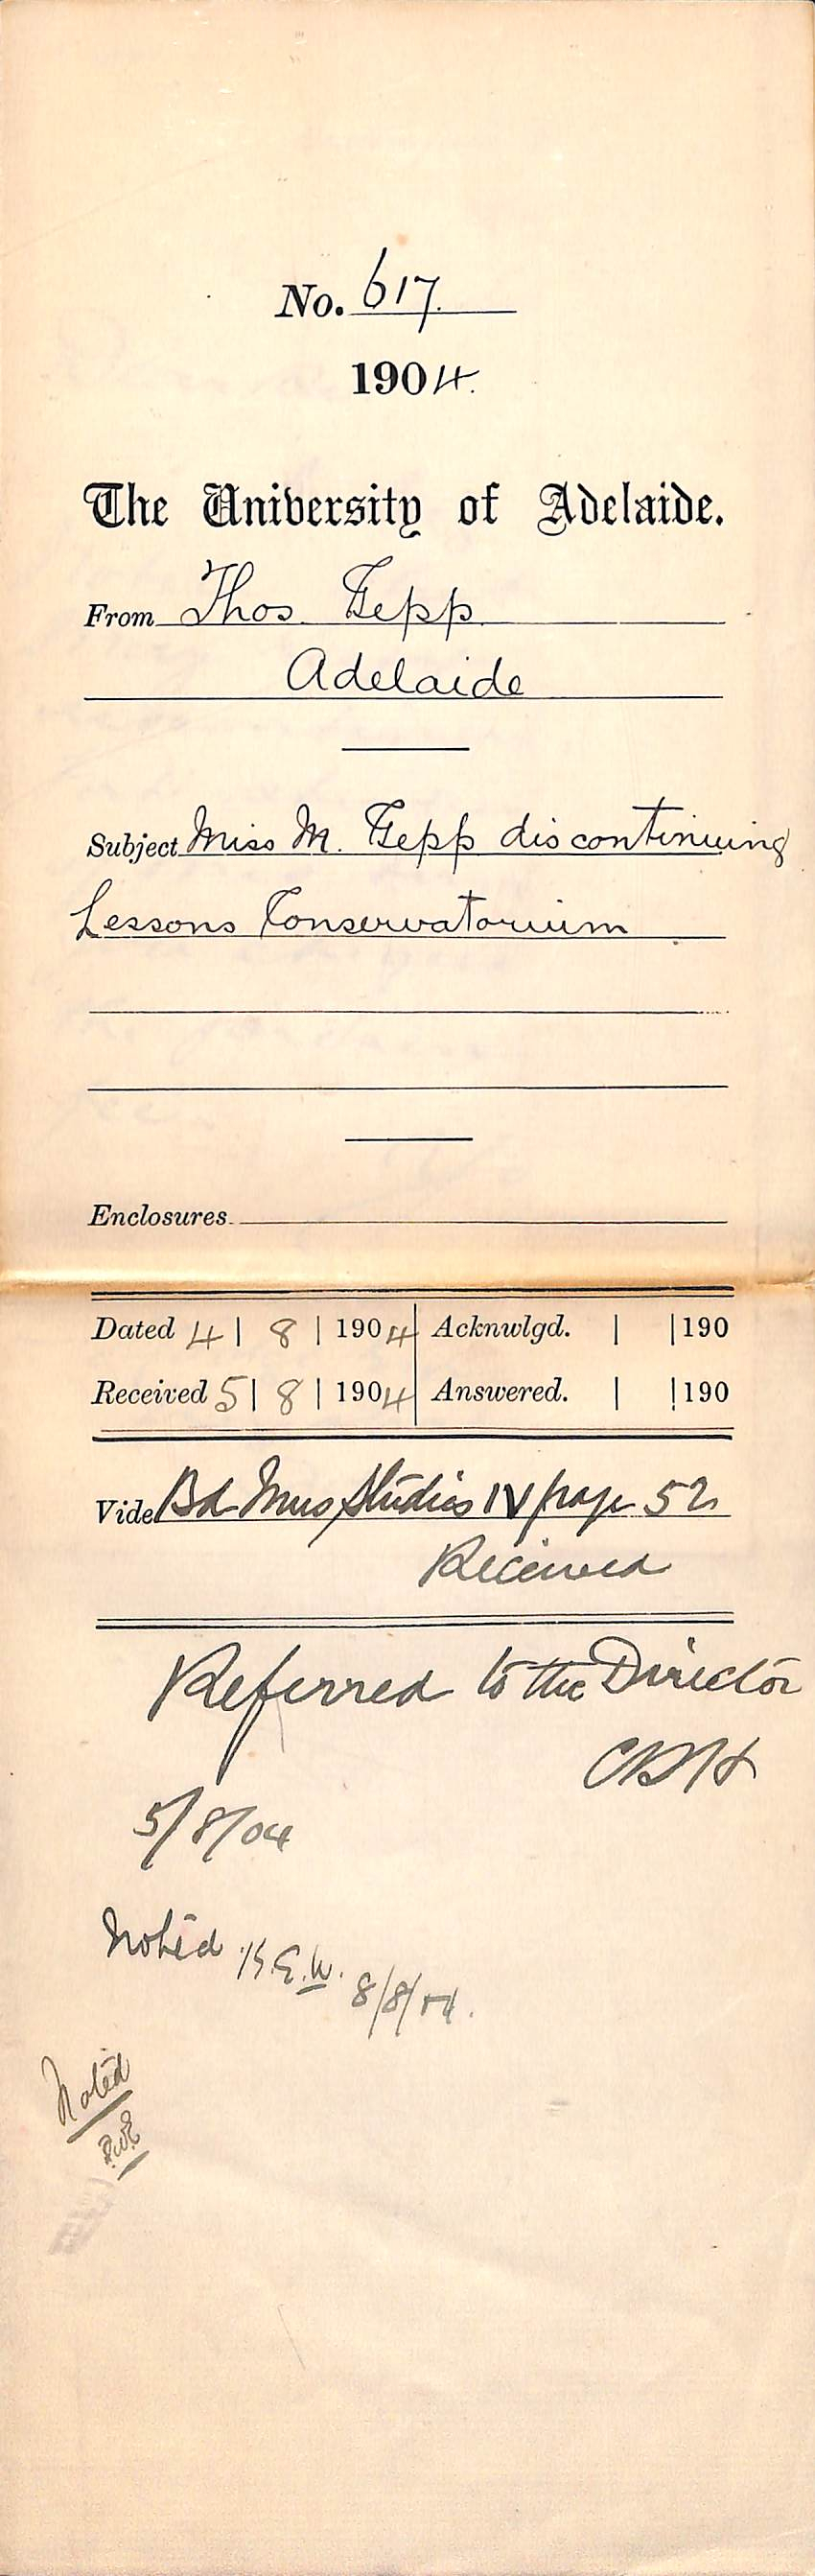 No. 617.
1904.
The University of Adelaide.
From Thos. Gepp
Adelaide
Subject Miss M. Gepp discontinuing
Lessons Conservatorium
Enclosures.
Dated 4 | 8 | 1904 Acknwlgd. | |190
Received 5 | 8 | 1904 Answered. | |190
Vide Bd Mus Studies IV page 52
Received
Referred to the Director
5/8/04
Noted 8/8/04.
Noted